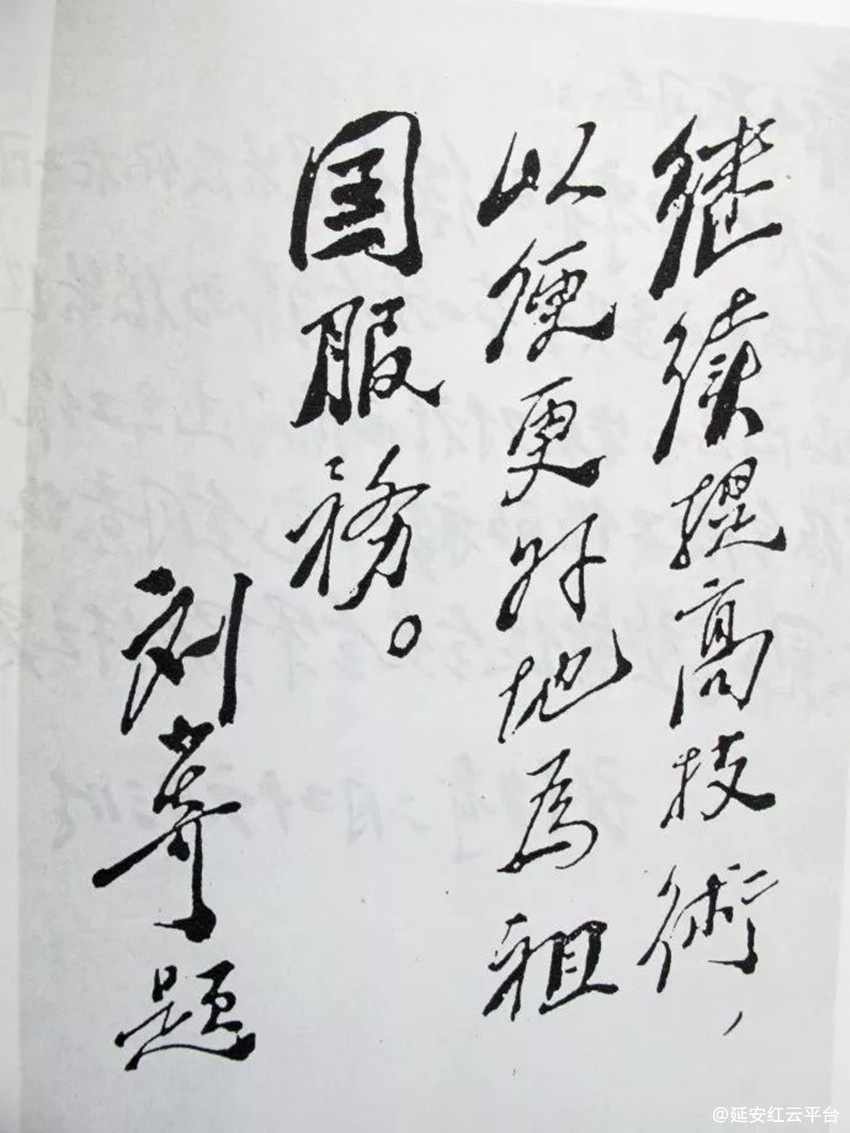 继续提高技術，
以便更好地為祖
国服務。
刘少奇题
@延安红云平台